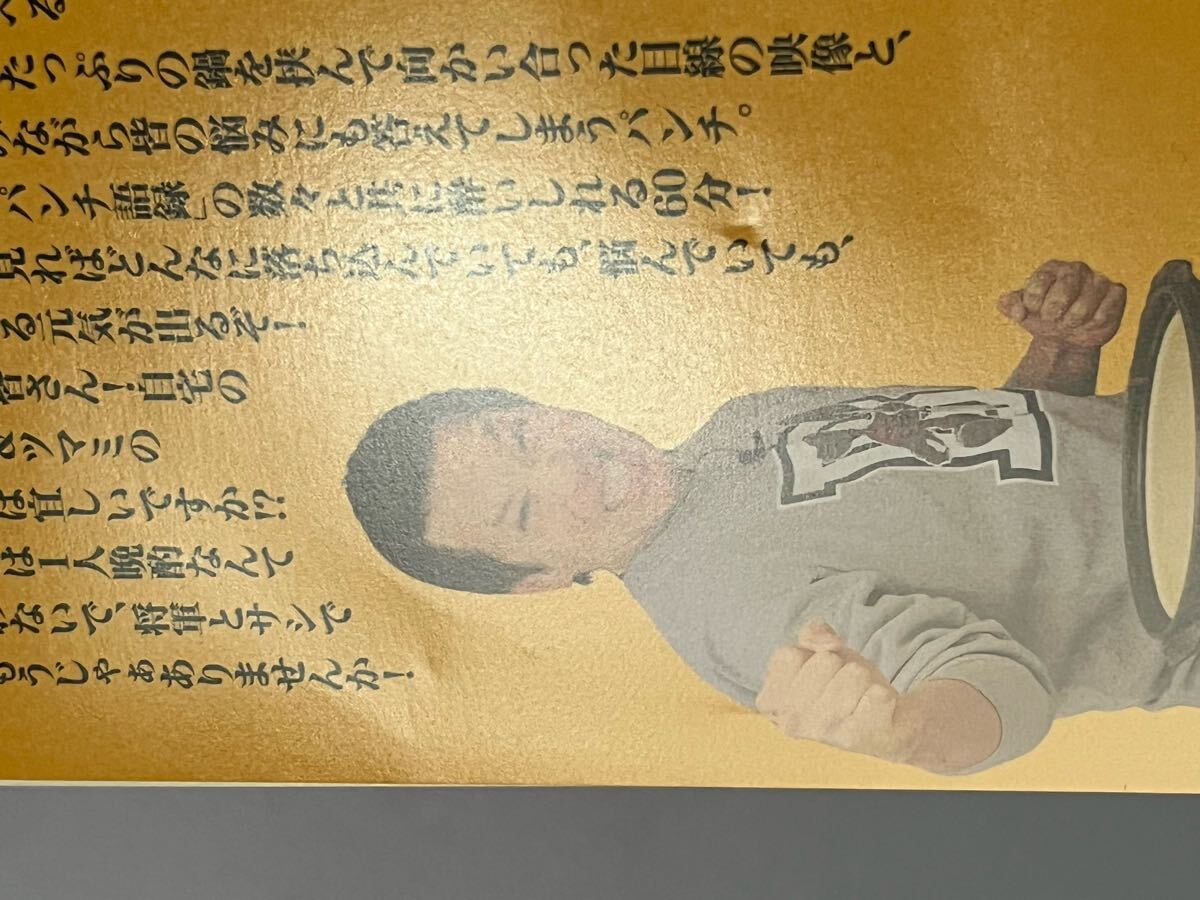 る
たっぷりの鍋を挟んで向かい合った目線の映像と、
ながら皆の悩みにも答えてしまうパンチ。
パンチ語録」の数々と共に酔いしれる60分！
見ればどんなに落ち込んでいても、悩んでいても、
る元気が出るぞ！
皆さん！自宅の
&ツマミの
は宜しいですか!?
は1人晩酌なんて
ないで、将軍とサシで
もうじゃぁありませんか！